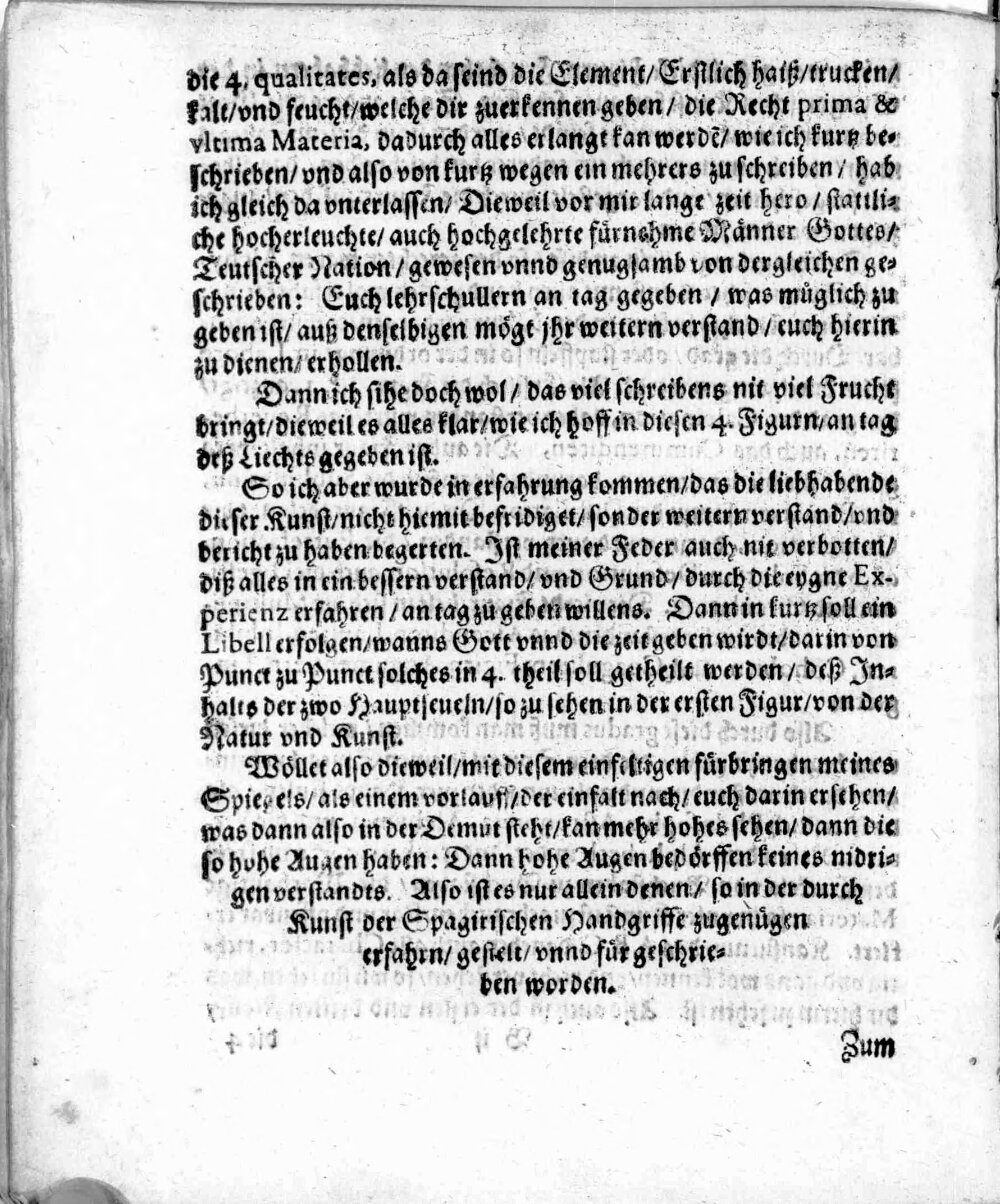 die 4. qualitates, als da seind die Element/ Erstlich haiß/trucken/
kalt/vnd feucht/welche dir zuerkennen geben/ die Recht prima &
vltima Materia, dadurch alles erlangt kan werdē/ wie ich kurtz be-
schrieben/ vnd also von kurtz wegen ein mehrers zu schreiben/ hab
ich gleich da vnterlassen/ Dieweil vor mir lange zeit hero/ stattli-
che hocherleuchte/ auch hochgelehrte fürnehme Männer Gottes/
Teutscher Nation/ gewesen vnnd genugsamb von dergleichen ge-
schrieben: Euch lehrschullern an tag gegeben/ was müglich zu
geben ist/ auß denselbigen mögt jhr weitern verstand/ euch hierin
zu dienen/ erhollen.
Dann ich sihe doch wol/ das viel schreibens nit viel Frucht
bringt/dieweil es alles klar/wie ich hoff in diesen 4. Figurn/an tag
deß Liechts gegeben ist.
So ich aber wurde in erfahrung kommen/das die liebhabende
dieser Kunst/nicht hiemit befridiget/ sonder weitern verstand/vnd
bericht zu haben begerten. Ist meiner Feder auch nit verbotten/
diß alles in ein bessern verstand/ vnd Grund/ durch die eygne Ex-
perienz erfahren/ an tag zu geben willens. Dann in kurtz soll ein
Libell erfolgen/wanns Gott vnnd die zeit geben wirdt/darin von
Punct zu Punct solches in 4. theil soll getheilt werden/ deß In-
halts der zwo Hauptseueln/so zu sehen in der ersten Figur/von der
Natur vnd Kunst.
Wöllet also dieweil/mit diesem einfeltigen fürbringen meines
Spiegels/ als einem vorlauff/der einfalt nach/ euch darin ersehen/
was dann also in der Demut steht/kan mehr hohes sehen/ dann die
so hohe Augen haben: Dann hohe Augen bedörffen keines nidri-
gen verstandts. Also ist es nur allein denen/ so in der durch
Kunst der Spagirischen Handgriffe zugenügen
erfahrn/ gestelt/ vnnd für geschrie-
ben worden.
Zum